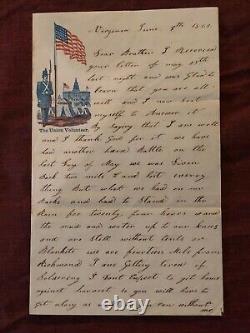 Virginia June 9th 1862
Dear Brother I Received
your letter of May 25th
last night and was Glad to
learn that you are all
well and I now seat
myself to Answer it
The Union Volunteer.
By saying that I am well
and I thank God for it we have
had another hard Battle on the
last Day of May we was Driven
Back two mile and lost every
thing But what we had on our
Backs and had to Stand in the
Rain for twenty four hours and
the mud and water up to our knees
and are Still without tents or
Blankets we are from Mile from
Richmond I am Getting tired of
Soldiering I Dont Expect to get home
against harvest so you will have to
get along as you can without
me